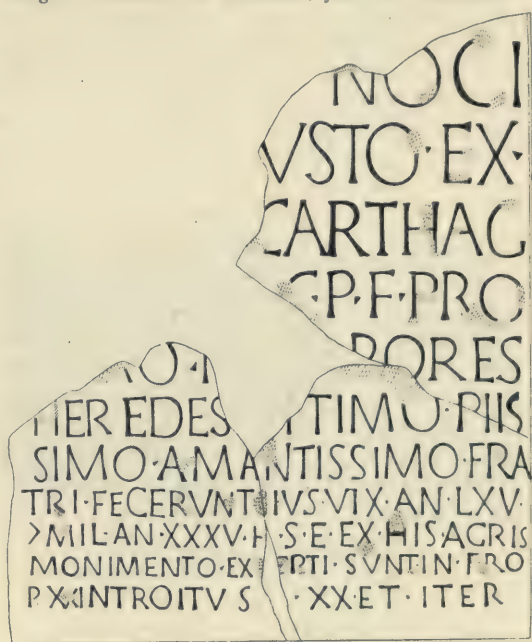 NOCI
VSTO·EX·
CARTHAG
P·F·PRO
RORES
HEREDES TIMO·PIIS
SIMO·AMANTISSIMO·FRA
TRI·FECERVNT IVS·VIX·AN·LXV·
>MIL·AN·XXXV·H·S·E·EX·HIS·AGRIS
MONIMENTO·EX EPTI·SVNT·IN·FRO
P·XX·INTROITVS ·XX·ET·ITER